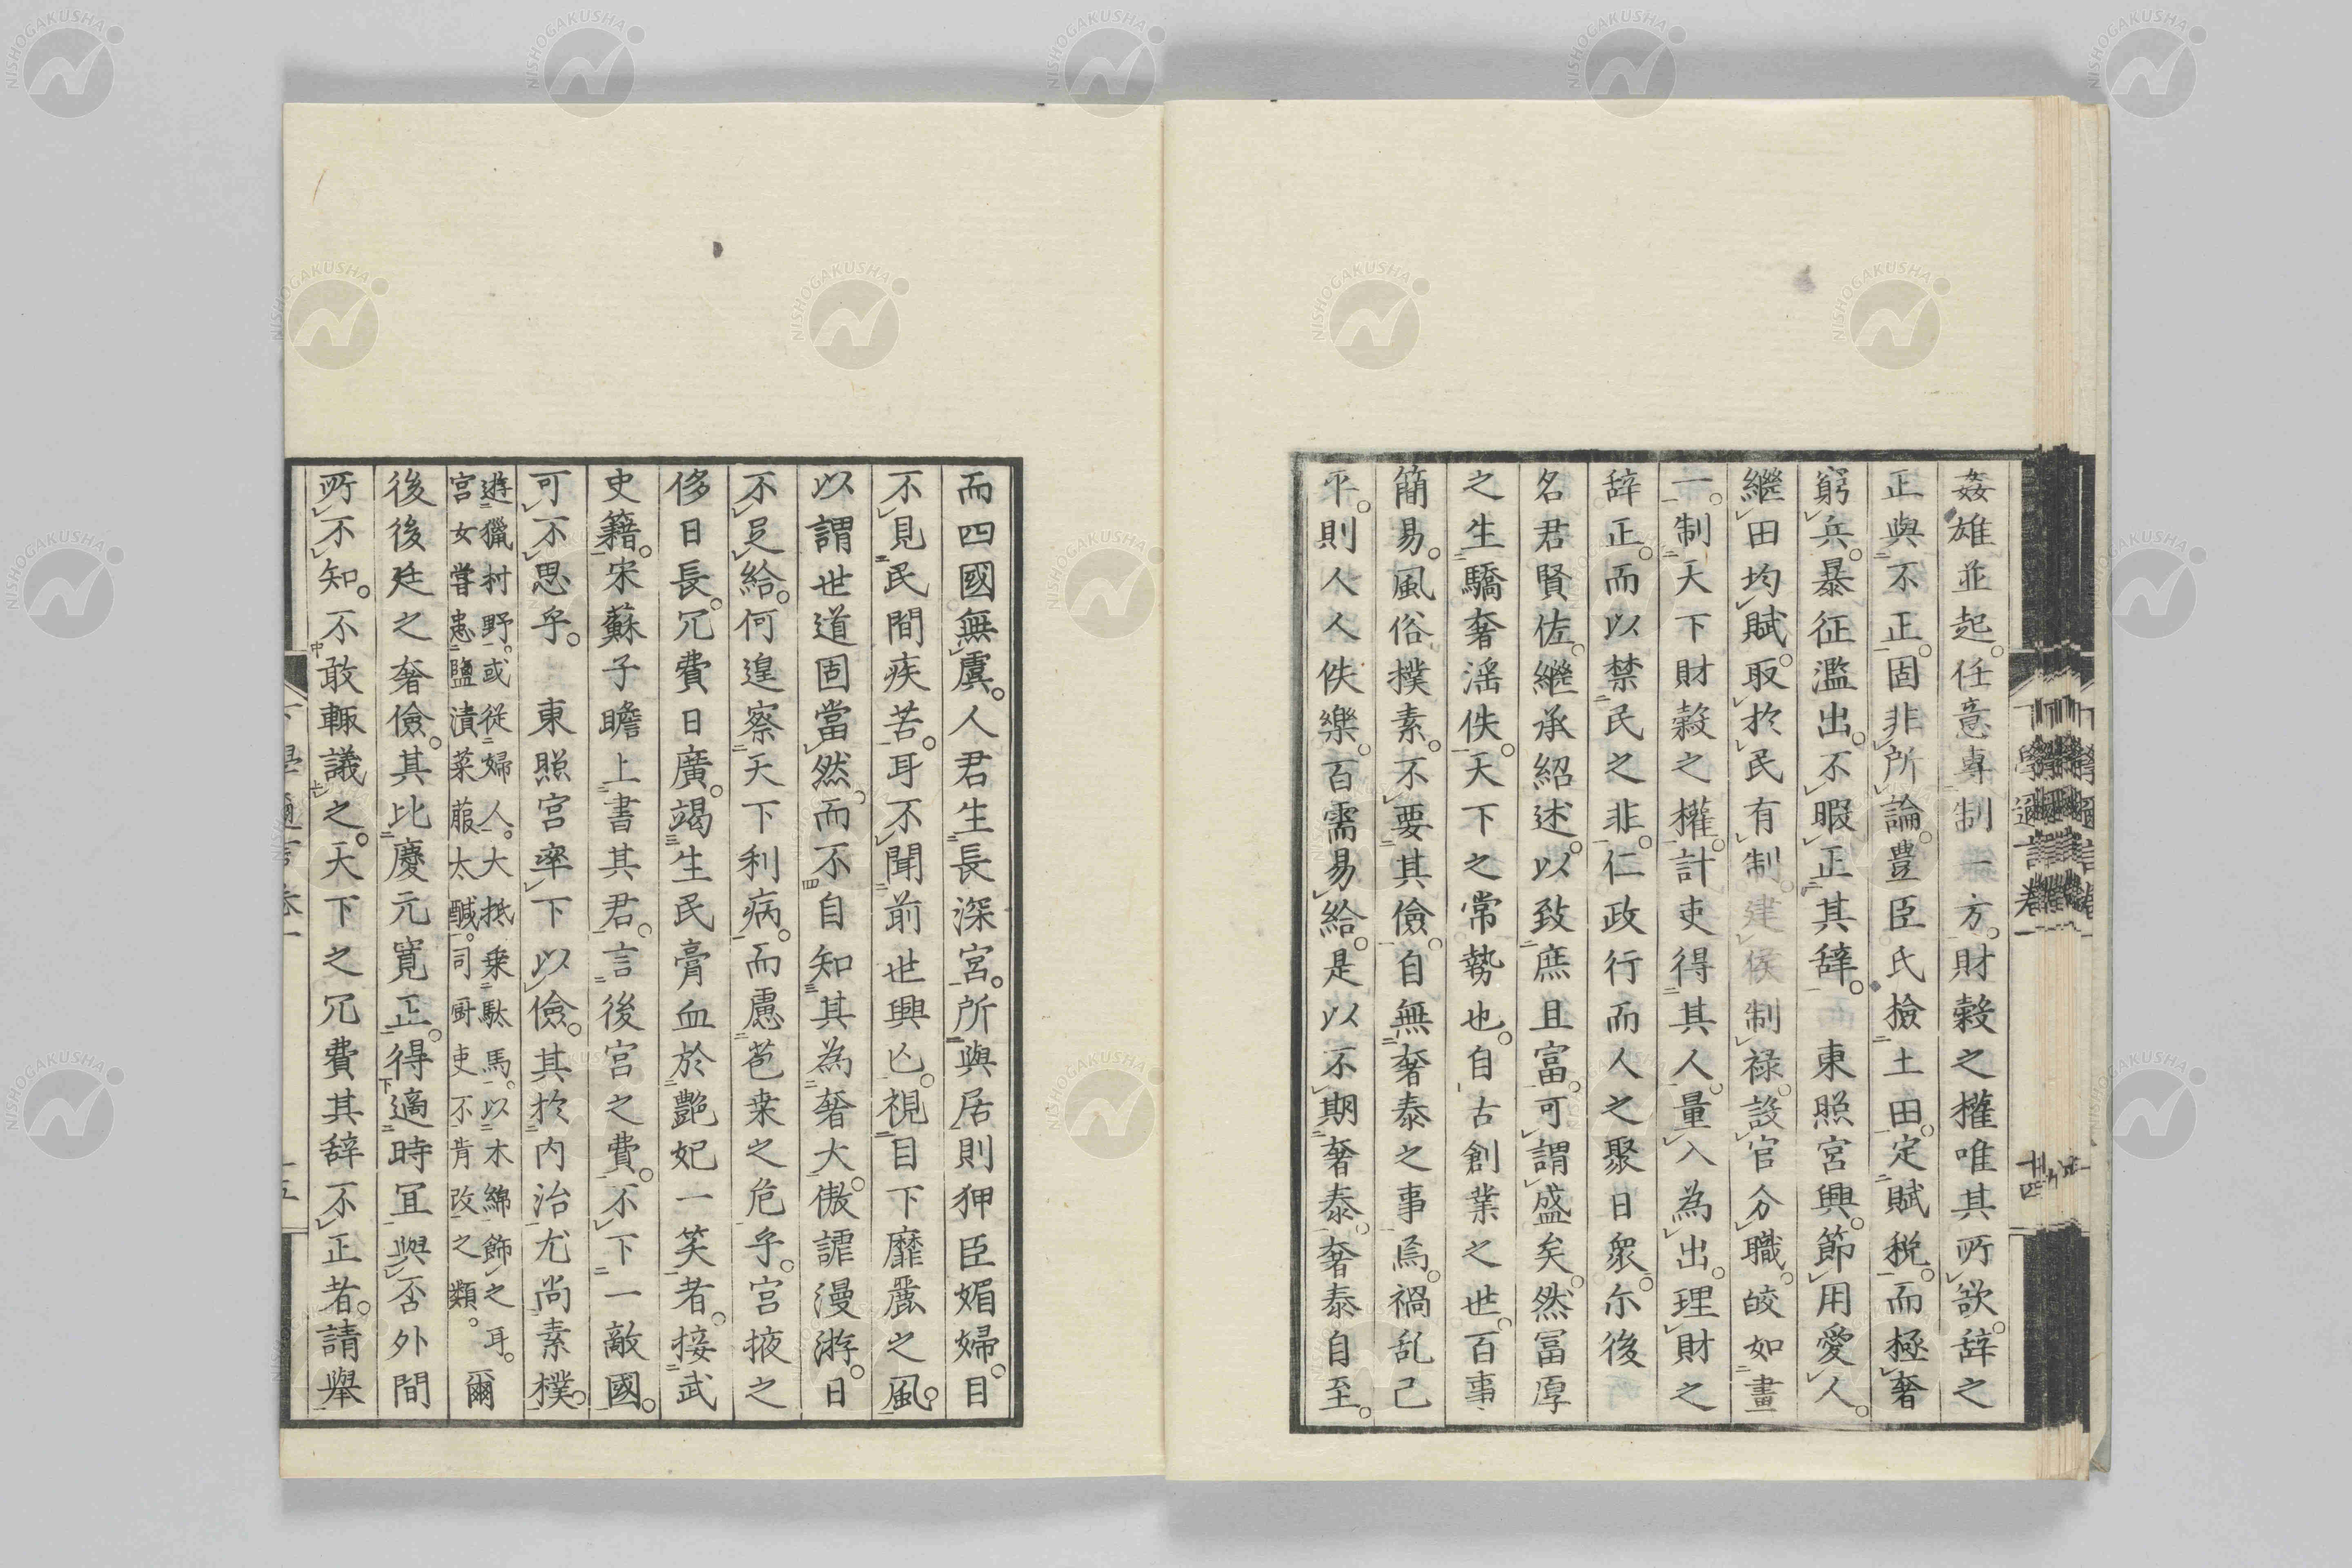 姦雄並起。任意專制一方。財穀之權唯其所欲。辞之
正與不正。固非所論。豊臣氏撿土田。定賦税。而極奢
窮兵。暴征濫出。不暇正其辞。東照宮興。節用愛人。
繼田均賦。取於民有制。建侯制禄。設官分職。皎如畫
一。制天下財穀之權。計吏得其人。量入為出。理財之
辞正。而以禁民之非。仁政行而人之聚日衆。尓後
名君賢佐。繼承紹述。以致庶且富。可謂盛矣。然冨厚
之生驕奢滛佚。天下之常勢也。自古創業之世。百事
簡易。風俗撲素。不要其儉。自無奢泰之事焉。禍乱己
平。則人人佚樂。百需易給。是以不期奢泰。奢泰自至。
而四國無虞。人君生長深宮。所與居則狎臣媚婦。目
不見民間疾苦。耳不聞前世興亾。視目下靡麗之風。
以謂世道固當然。而不自知其為奢大。傲謔漫游。日
不足給。何遑察天下利病。而慮苞桒之危乎。宮掖之
侈日長。冗費日廣。竭生民膏血於艶妃一笑者。接武
史籍。宋蘇子瞻上書其君。言後宮之費。不下一敵國。
可不思乎。東照宮率下以儉。其於内治尤尚素樸。
遊獵村野。或從婦人。大抵乗駄馬。以木綿飾之耳。
宮女嘗患鹽漬菜菔太醎。司厨吏不肯改之類。爾
後後廷之奢儉。其比慶元寛正。得適時冝與否。外間
所不知。不敢輙議之。天下之冗費其辞不正者。請舉
NISHOGAKUSHA